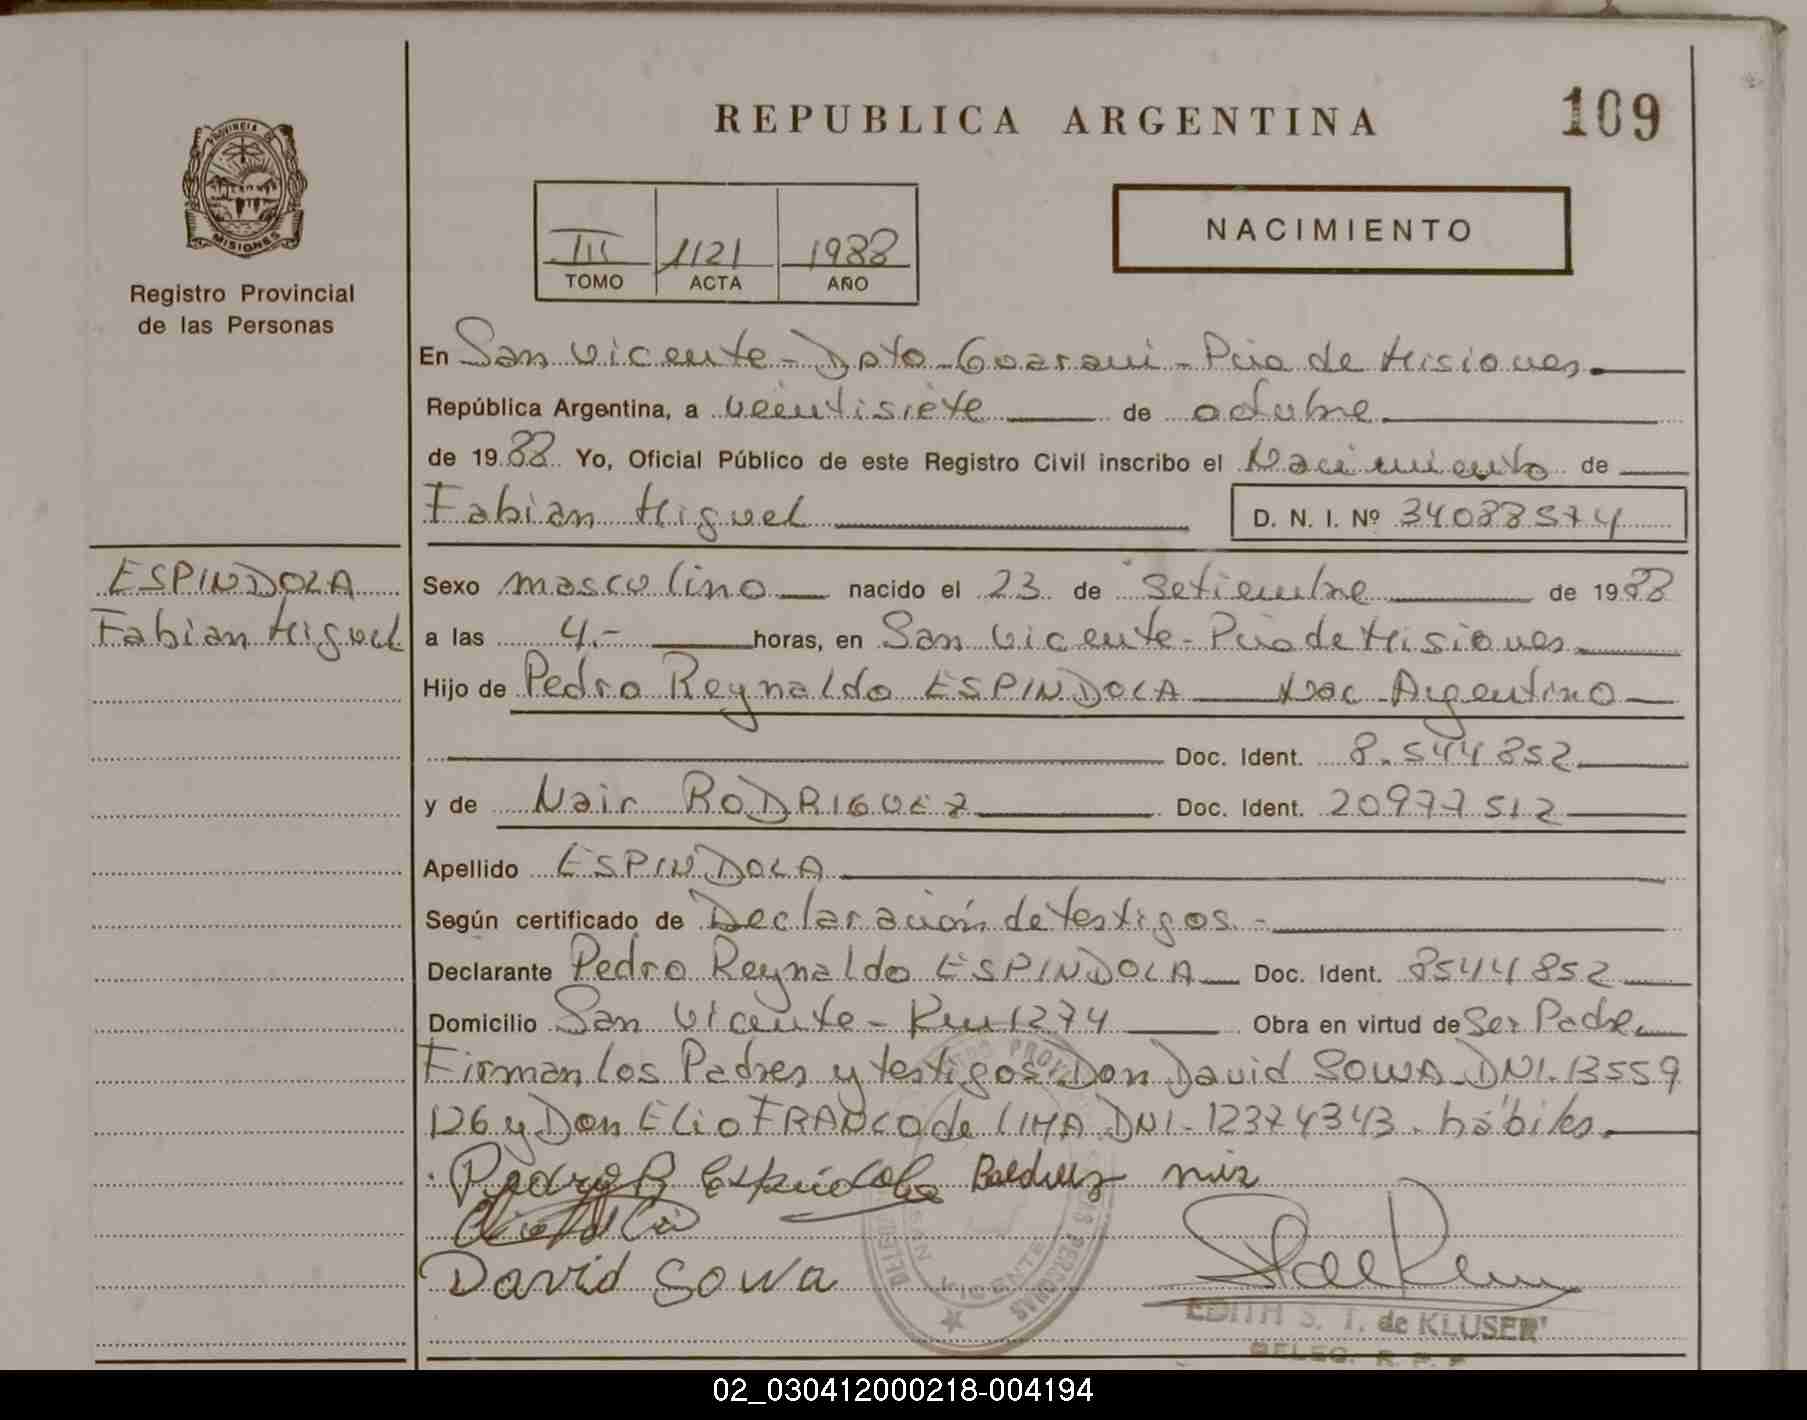 REPUBLICA ARGENTINA
109
PROVINCIA DE
MISIONES
Registro Provincial
de las Personas
III 1121 1988
TOMO ACTA AÑO
NACIMIENTO
En San Vicente - Dpto Guaraní - Pcia de Misiones
República Argentina, a veintisiete de octubre
de 1988 Yo, Oficial Público de este Registro Civil inscribo el Nacimiento de
Fabian Miguel D. N. I. Nº 34088574
ESPINDOLA
Fabian Miguel
Sexo masculino nacido el 23 de setiembre de 1988
a las 4.- horas, en San Vicente - Pcia de Misiones
Hijo de Pedro Reynaldo ESPINDOLA Nac Argentino
Doc. Ident. 8.544852
y de Nair RODRIGUEZ Doc. Ident. 20977512
Apellido ESPINDOLA
Según certificado de Declaración de testigos.-
Declarante Pedro Reynaldo ESPINDOLA Doc. Ident. 8544852
Domicilio San Vicente - Km 1274 Obra en virtud de Ser Padre
Firman los Padres y testigos Don David SOWA DNI. 13559
126 y Don Elio FRANCO de LIMA DNI - 12374343. hábiles.
Pedro R Espindola
David Sowa
SAN VICENTE
EDITH S. T. de KLUSER
DELEG. R. P. P.
02_030412000218-004194